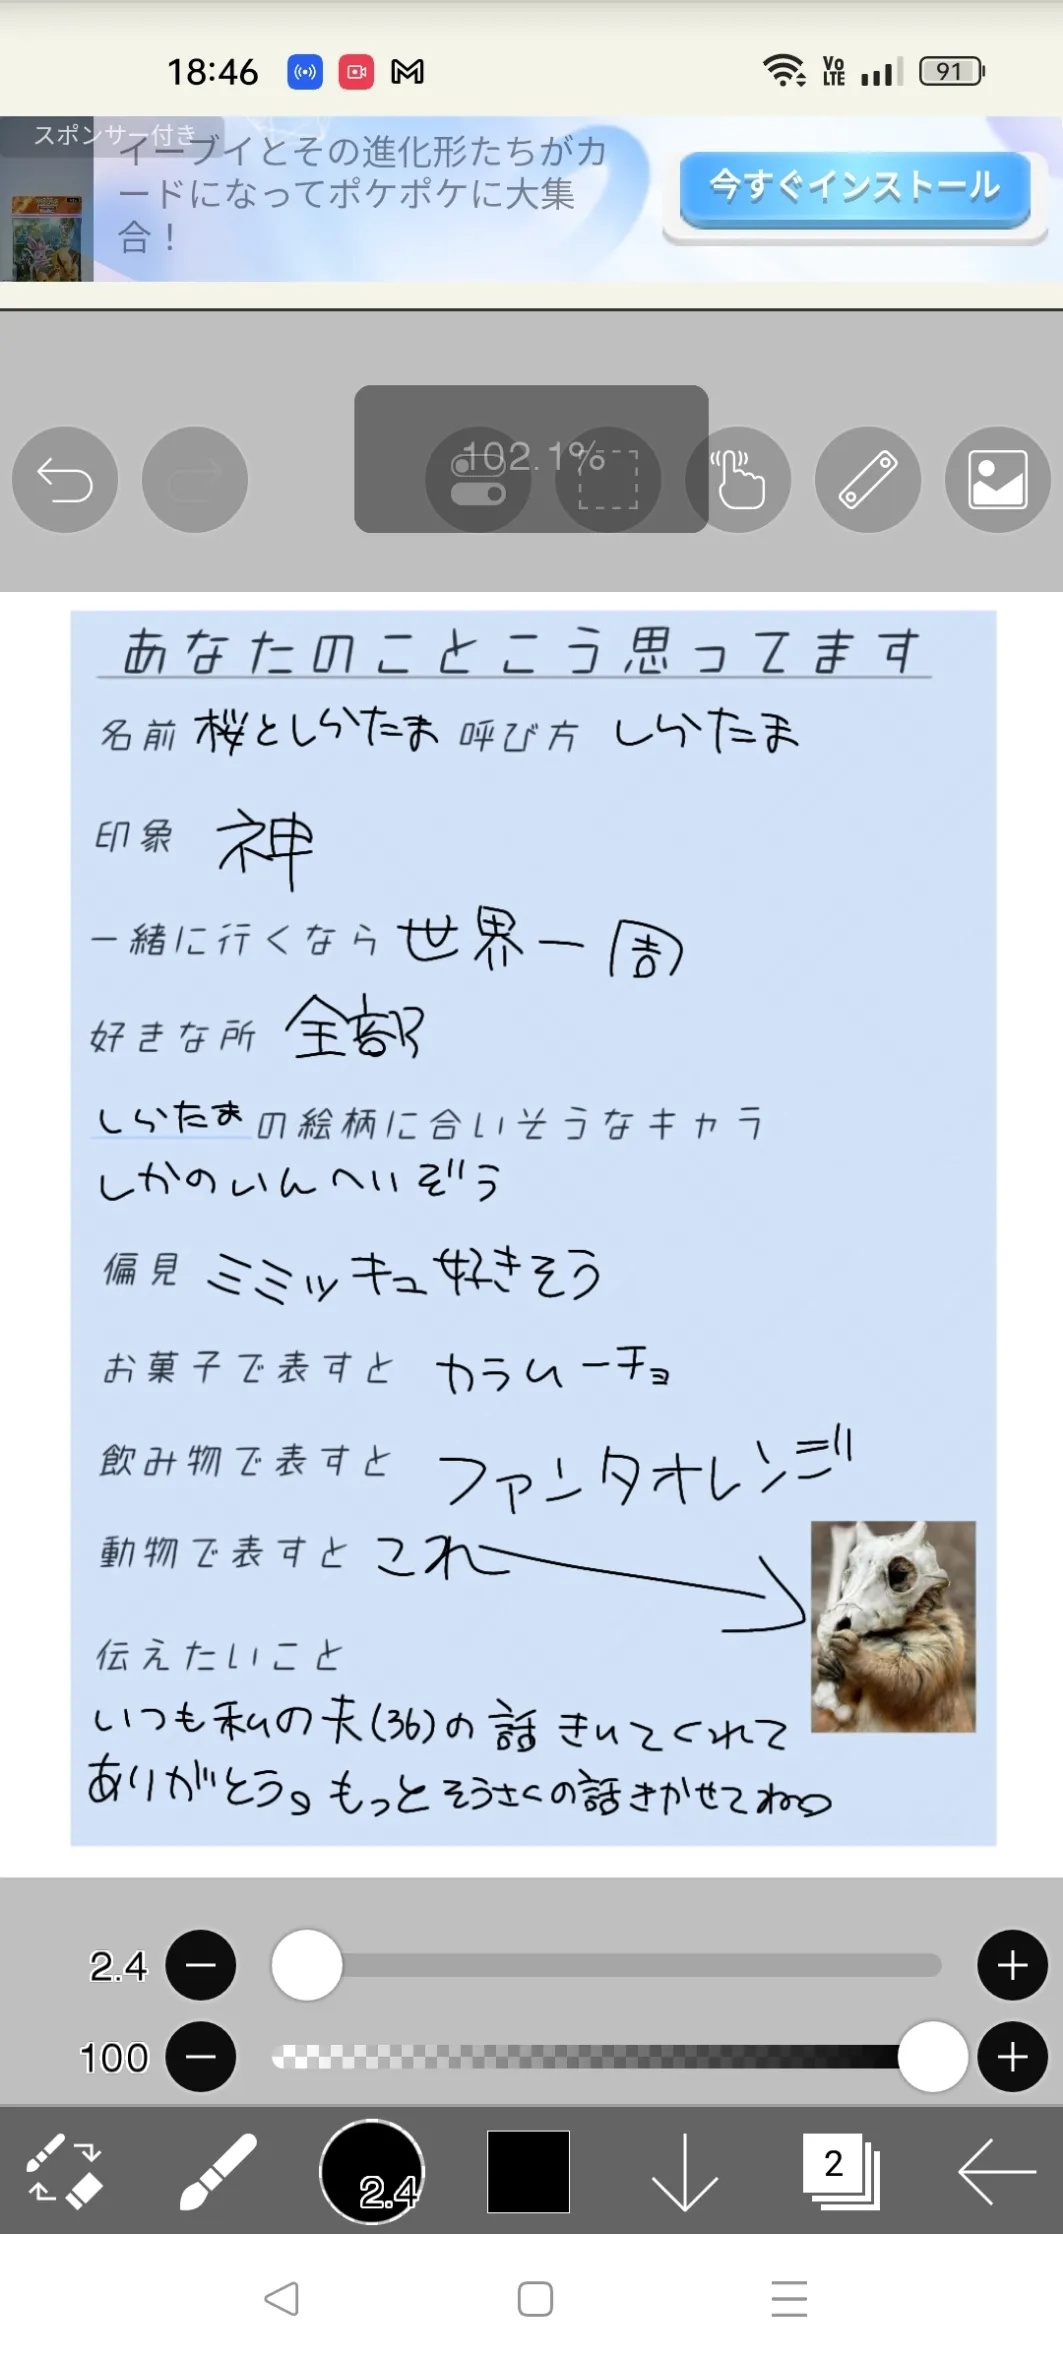 18:46
Vo LTE
91
スポンサー付き
イーブイとその進化形たちがカ
ードになってポケポケに大集
合！
今すぐインストール
102.1%
あなたのことこう思ってます
名前 桜としらたま 呼び方 しらたま
印象 神
一緒に行くなら 世界一周
好きな所 全部
しらたまの絵柄に合いそうなキャラ
しかのいんへいぞう
偏見 ミミッキュ好きそう
お菓子で表すと カラムーチョ
飲み物で表すと ファンタオレンジ
動物で表すと これ
伝えたいこと
いつも私の夫(36)の話きいてくれて
ありがとう。もっとそうさくの話きかせてね。
2.4
100
2.4
2